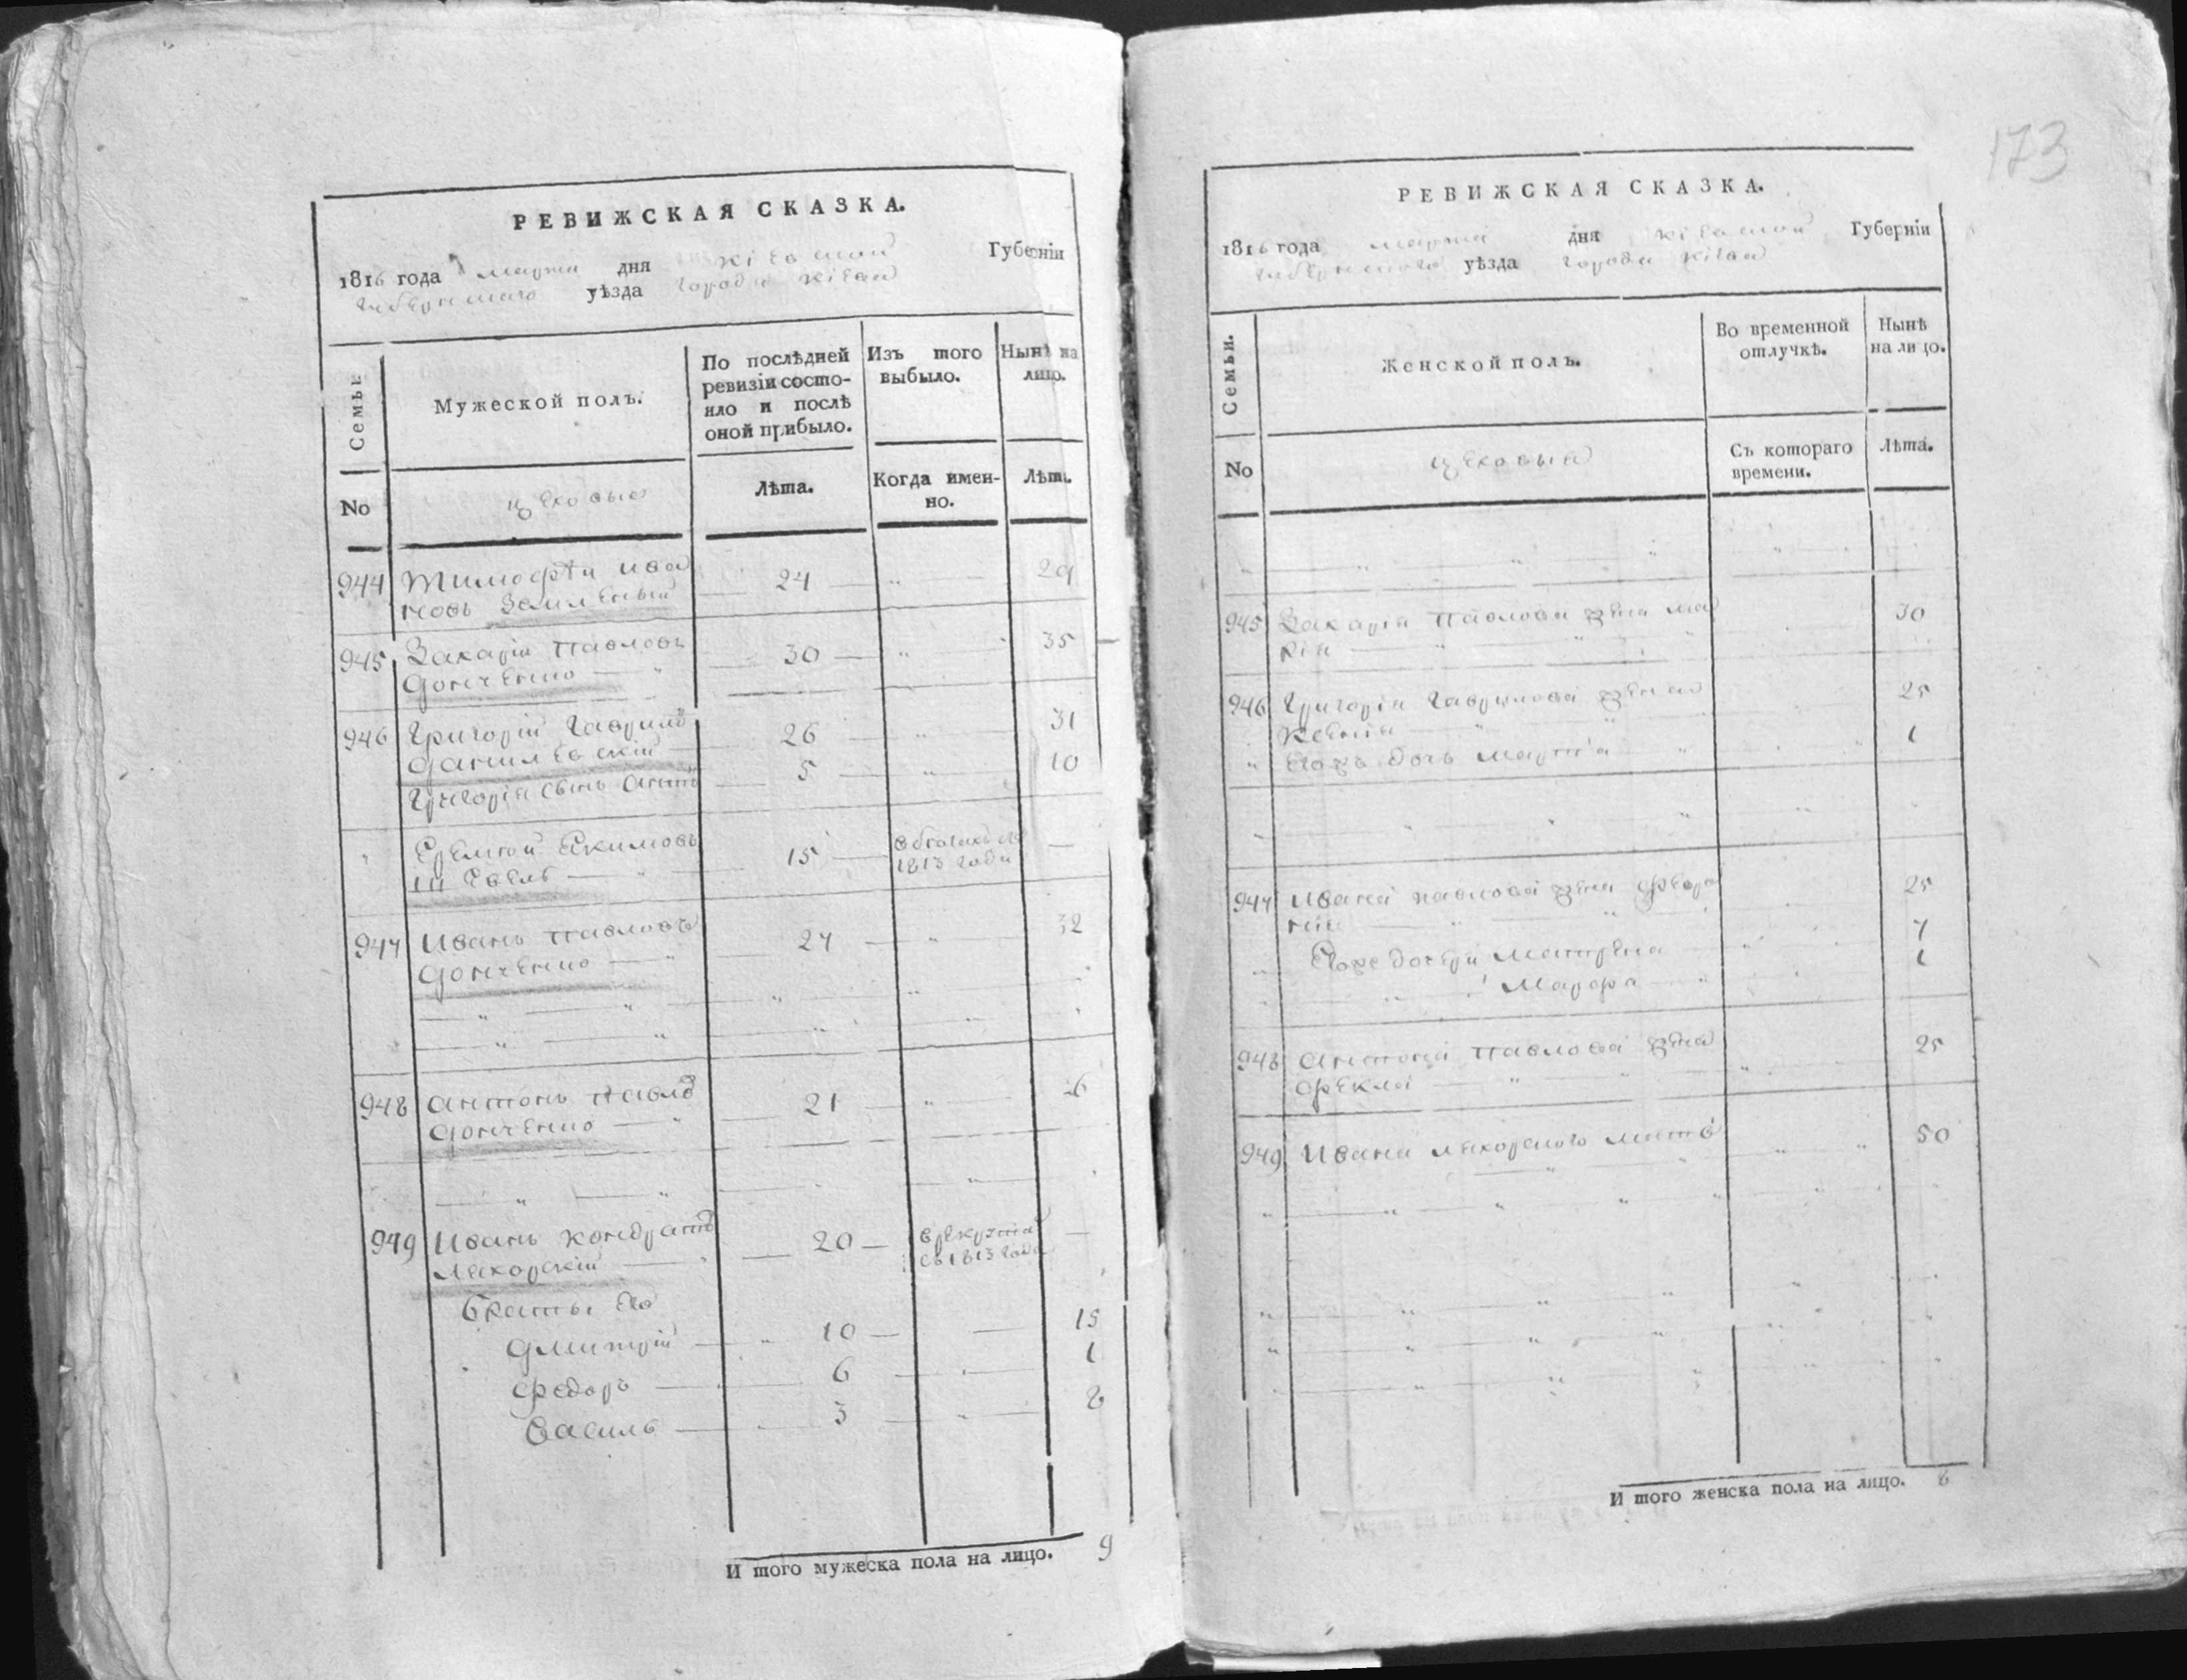 173
РЕВИЖСКАЯ СКАЗКА.
1816 года марта дня Кіевской Губерніи
уѣзда города Кіева
Семьи.
Мужеской полъ.
По послѣдней ревизіи состояло и послѣ оной прибыло.
Изъ того выбыло.
Нынѣ на лицо.
No
цеховые
Лѣта.
Когда именно.
Лѣта.
944 Тимофѣй Ива
новъ 24 29
945 Захарій Павловъ
Донченко 30 35
946 Григорій Гаврилов
Данилевскій 26 31
Григорія сынъ 5 10
Якимовъ
15 1813 года
947 Иванъ Павловъ
Донченко 27 32
948 Антонъ Павлов
Донченко 21 26
949 Иванъ Кондратов
20 в рекруты
съ 1813 года
Браты его
Дмитрій 10 15
Федоръ 6 1
Василь 3 8
И того мужеска пола на лицо. 9
РЕВИЖСКАЯ СКАЗКА.
1816 года марта дня Кіевской Губерніи
уѣзда города Кіева
Семьи.
Женской полъ.
Во временной отлучкѣ.
Нынѣ на лицо.
No
цеховыя
Съ котораго времени.
Лѣта.
945 Захарія Павлова жена Ма
рія 30
946 Григорія Гаврилова жена
Ксенія 25
Егожъ дочь Марфа 1
947 Ивана Павлова жена Февро
нія 25
Егоже дочери Матрена 7
1
948 Антона Павлова жена
Фекла 25
949 Ивана мать 50
И того женска пола на лицо. 8